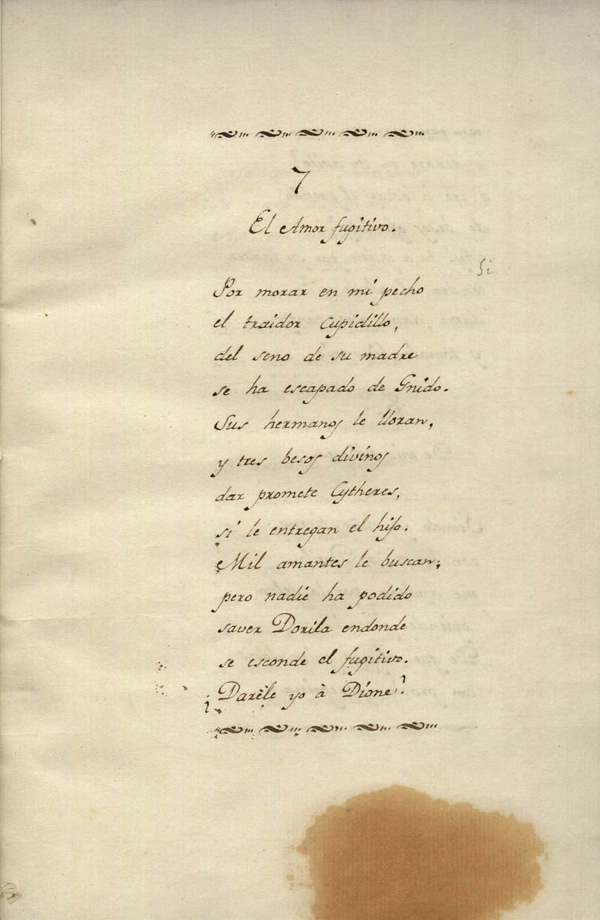 7
El Amor fugitivo.
Si
Por morar en mi pecho
el traidor Cupidillo,
del seno de su madre
se ha escapado de Gnido.
Sus hermanos le lloran,
y tres besos divinos
dar promete Cytheres,
si le entregan el hijo.
Mil amantes le buscan;
pero nadie ha podido
saver Dorila endonde
se esconde el fugitivo.
¿Darèle yo à Dione?